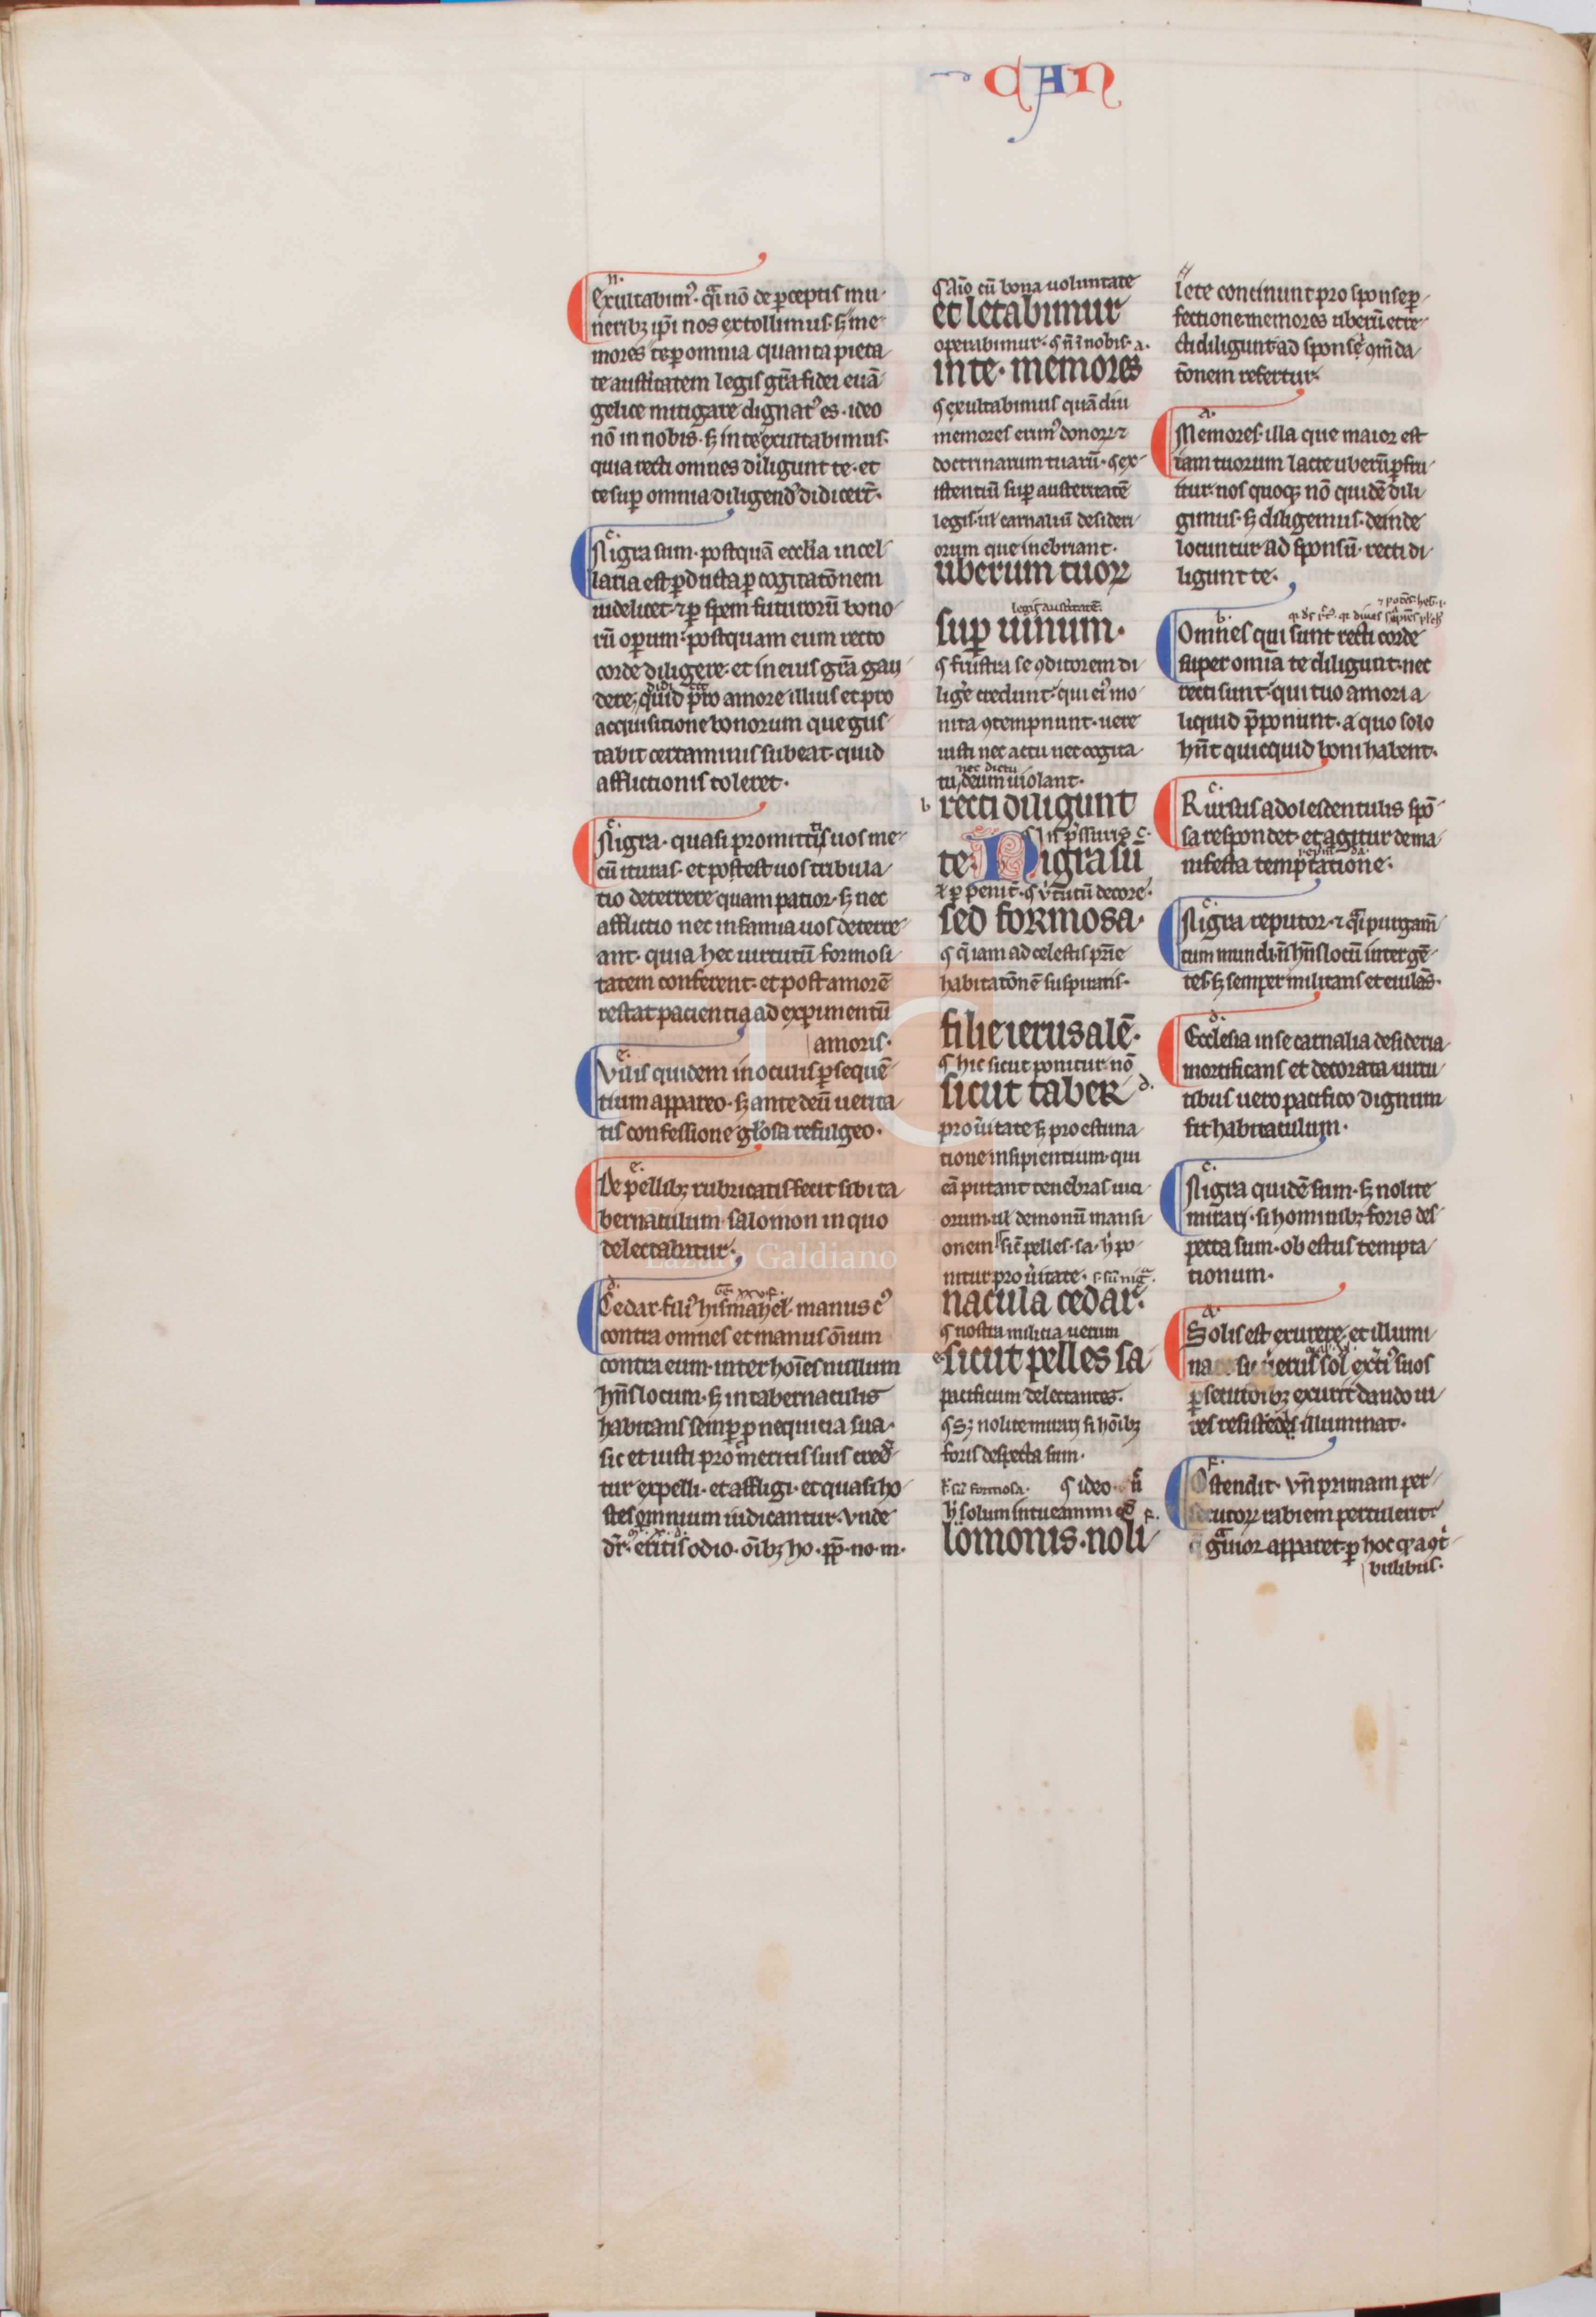 CAN
n.
Exultabim᷒. q̃i nō de ꝑceptis mu
neribꝫ ip̄i nos extollimus. sꝫ me
mores te ꝑ omnia quanta pieta
te austitatem legis gr̄a fidei euā
gelice mitigare dignat᷒ es. ideo
nō in nobis. sꝫ in te exultabimus.
quia recti omnes diligunt te. et
te suꝑ omnia diligend᷒ didicerr̄.
c.
Nigra sum. postquā eccl̄ia in cel
laria est ꝑducta ꝑ cogitatōnem
uidelicet. ⁊ ꝑ spem futurorū bono
rū oꝑum. postquam eum recto
corde diligere. et in eius gr̄a gau
dere, quid ꝑro amore illius et pro
acquisitione bonorum que gus
tabit certaminis subeat. quid
afflictionis toleret.
c.
Nigra. quasi promittitis uos me
cū ituras. et potest uos tribula
tio deterrere quam patior. sꝫ nec
afflictio nec infamia uos deterre
ant. quia hec uirtutū formosi
tatem conferent. et post amorē
restat paciencia ad exꝑimentū
amoris.
e.
Vilis quidem in oculis ꝑsequē
tium appareo. sꝫ ante deū uerita
tis confessione gl̄osa refulgeo.
e.
De pellibꝫ rubricatis fecit sibi ta
bernaculum salomon in quo
delectabitur.
d.
Cedar. fili᷒ hismahel. manus e᷒
contra omnes et manus oīum
contra eum. inter hoīes nullum
hn̄s locum. sꝫ in tabernaculis
habitans semꝑ ꝓ nequicia sua.
sic et iusti pro meritis suis cred
tur expelli. et affligi. et quasi ho
stes omnium iudicantur. Vnde
dr̄. eritis odio. oībꝫ ho. ꝓp̄. no. m.
¶ Aīo cū bona uoluntate
et letabimur
operabimur. ¶ n̄ ī nobis. a.
in te. memores
¶ exultabimus quādiu
memores erim᷒ donoꝝ ⁊
doctrinarum tuarū. ¶ ex
istentiū suꝑ austeritatē
legis. ul carnaliū desideri
orum que inebriant.
uberum tuoꝝ
legis austitatē.
suꝑ uinum.
¶ frustra se ꝯditorem di
lig̃e credunt. qui ei᷒ mo
nita ꝯtempnunt. uere
iusti nec actu nec cogita
nec dictu
tu, deum uiolant.
b recti diligunt
¶ In p̄ssuris c.
te. Nigra sū
⁊ ꝑ penit̄. ¶ uirtutū decore.
sed formosa.
¶ q̄ iam ad celestis pr̄ie
habitatōnē suspiratis.
filie ierusalē.
¶ hic sicut ponitur. nō
sicut taber d.
pro ūitate sꝫ pro estima
tione insipientium. qui
eā putant tenebras uici
orum. ul demonū mansi
onem. sic̄ pelles. sa. h̄ po
nitur pro ūitate. s. sū nig̃.
nacula cedar.
¶ nostra milicia uerum
e. sicut pelles sa
pacificum delectantes.
¶ Sꝫ nolite mirari si hoībꝫ
foris despecta sum.
s. sū formosa. ¶ ideo n̄
h̄ solum intueamini qd̄ f.
lomonis. noli
lete continunt pro sponse ꝑ
fectione memores uberū et re
cti diligunt ad sponsē ꝯm̄da
tōnem refertur.
a.
Memores. illa que maior est
iam tuorum lacte uberū ꝑfru
itur. nos quoqꝫ nō quidē dili
gimus. sꝫ diligemus. deinde
locuntur ad sponsū. recti di
ligunt te.
b.
Omnes qui sunt recti corde
super omīa te diligunt. nec
recti sunt. qui tuo amori a
liquid p̄ponunt. a quo solo
hn̄t quicquid boni habent.
c.
Rursus adolescentulis spō
sa respondet. et agitur de ma
nifesta temptatione.
c.
Nigra reputor. ⁊ q̃i purgam̄
tum mundi. n̄ hn̄s locū inter gē
tes. sꝫ semper militans et exulās.
d.
Ecclesia in se carnalia desideria
mortificans et decorata uirtu
tibus uero pacifico dignum
fit habitaculum.
c.
Nigra quidē sum. sꝫ nolite
mirari. si hominibꝫ foris des
pecta sum. ob estus tempta
tionum.
a.
Solis est exurere, et illumi
ꝑsecutoribꝫ exurit dando ui
res resistēdi illuminat.
f.
Ostendit. Vn̄ primam per
secutoꝝ rabiem pertulerit
g̃uior apparet. ꝑ hoc
bilibus.